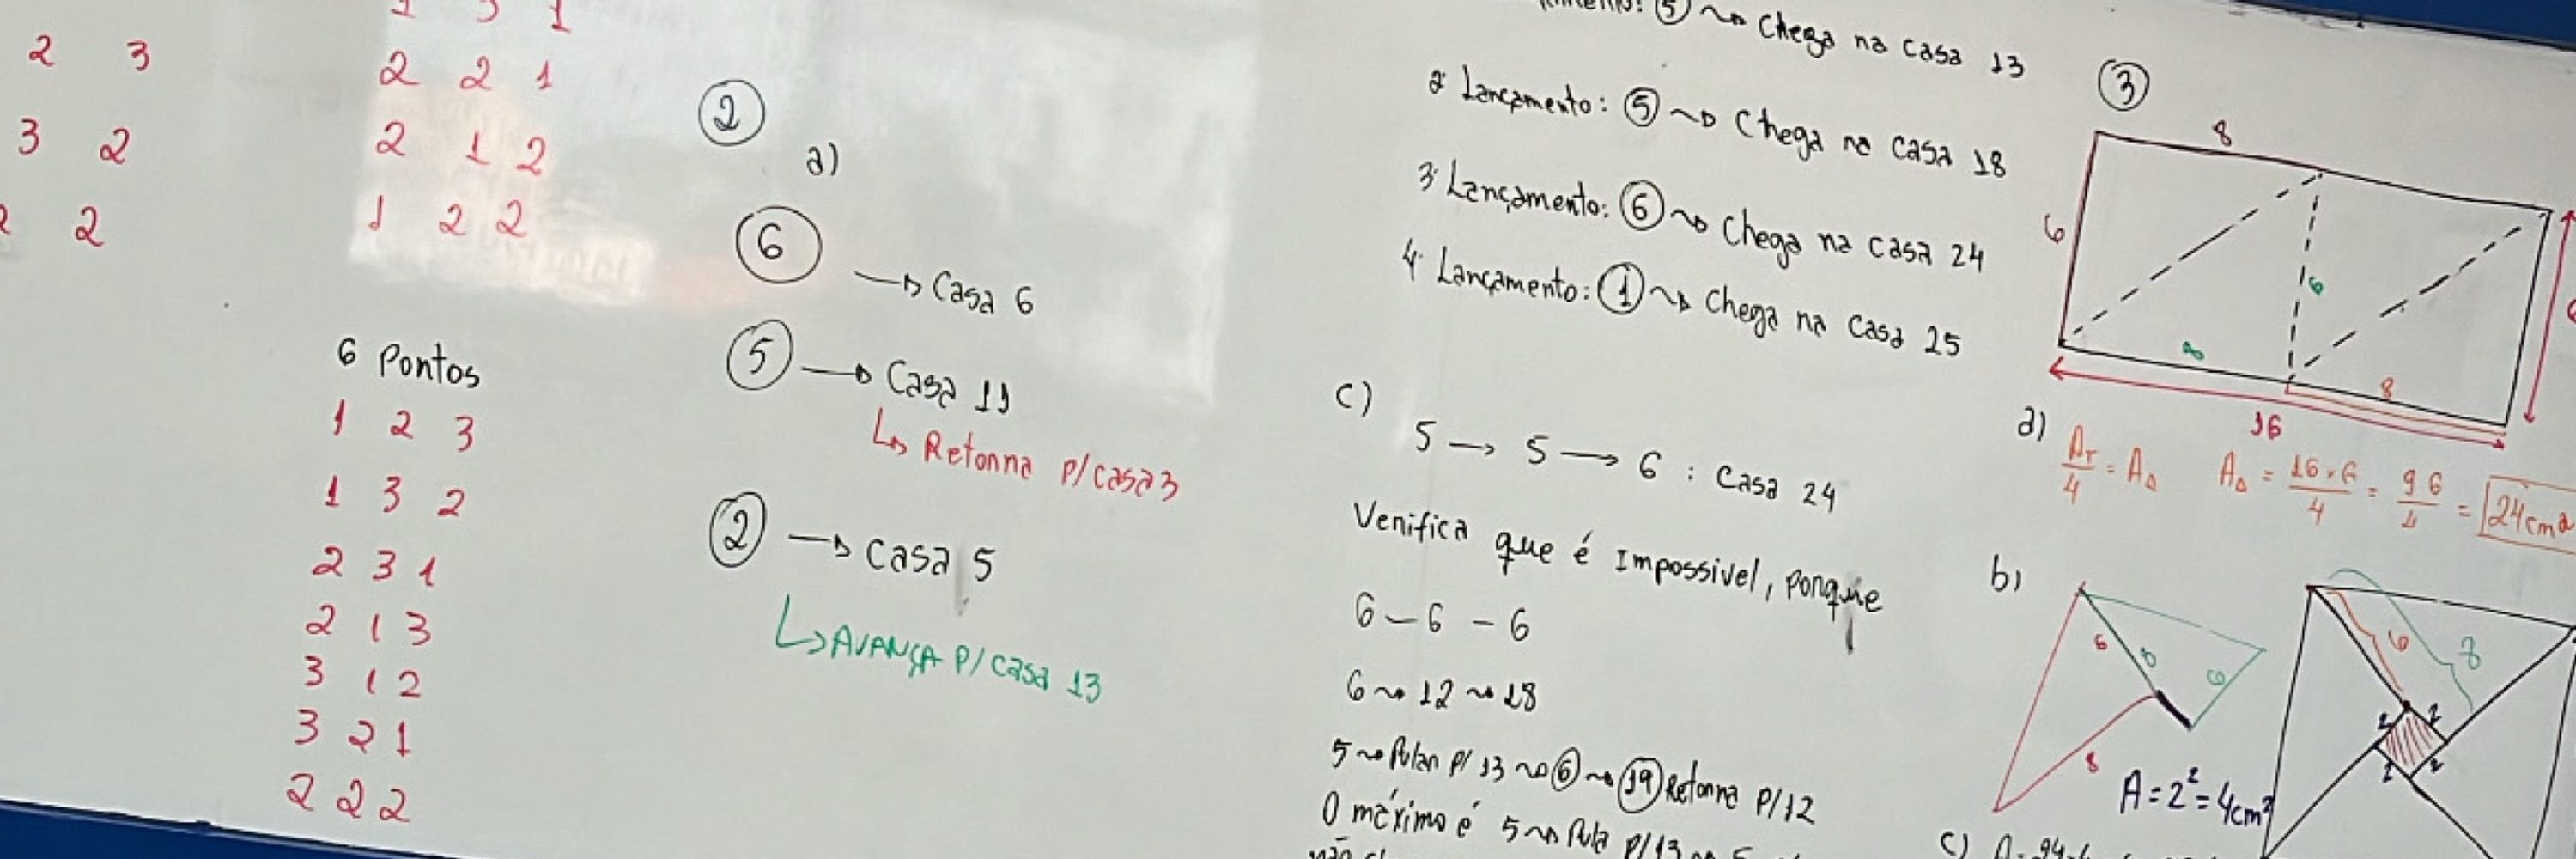 2 3
3 2
2
2 2 1
2 1 2
1 2 2
6 Pontos
1 2 3
1 3 2
2 3 1
2 1 3
3 1 2
3 2 1
2 2 2
2
a)
6 → Casa 6
5 → Casa 11
↳ Retorna p/casa 3
2 → Casa 5
↳ AVANÇA P/ casa 13
5 ⇝ Chega na casa 13
2º Lançamento: 5 ⇝ Chega na casa 18
3º Lançamento: 6 ⇝ Chega na casa 24
4º Lançamento: 1 ⇝ Chega na casa 25
c)
5 → 5 → 6 : Casa 24
Verifica que é Impossivel, porque
6 – 6 – 6
6 ⇝ 12 ⇝ 18
5 ⇝ Pular p/ 13 ⇝ 6 ⇝ 19 Retorna p/12
O máximo é 5 ⇝ Pula p/13 ⇝ 5
3
8
6
6
8
8
16
a) AT/4 = A△ A△ = 16.6/4 = 96/4 = 24cm²
b)
6 8 6
8
A = 2² = 4cm²
6 8
2 2
2 2
c)